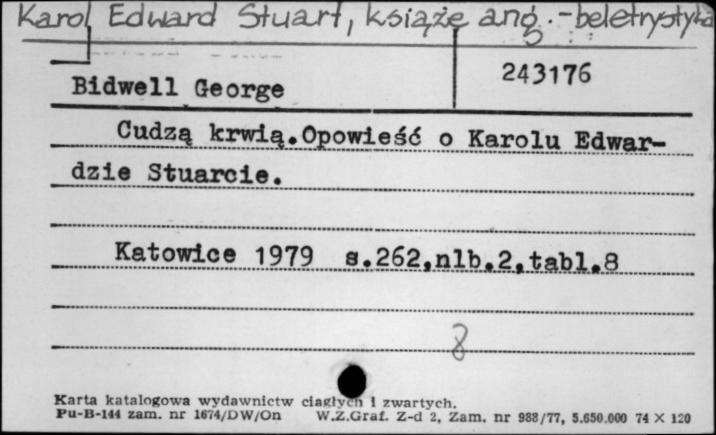 Karol Edward Stuart, książę ang. - beletrystyka
243176
Bidwell George
Cudzą krwią.Opowieść o Karolu Edwar-
dzie Stuarcie.
Katowice 1979 s.262,nlb.2,tabl.8
8
Karta katalogowa wydawnictw ciągłych i zwartych.
Pu-B-144 zam. nr 1674/DW/On W.Z.Graf. Z-d 2, Zam. nr 988/77, 5.650.000 74 X 120